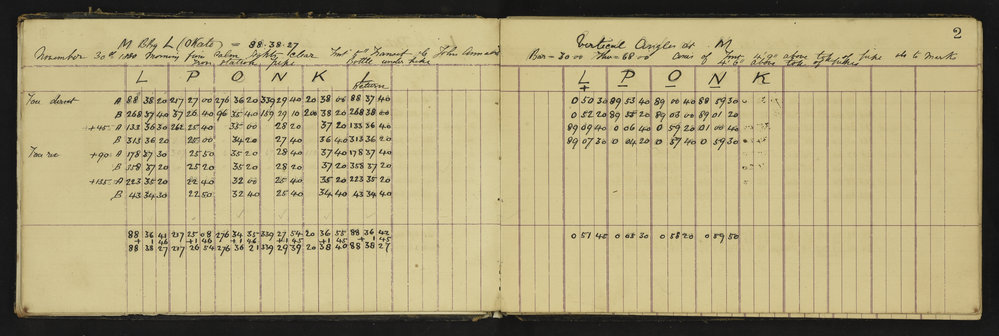 M Bkg L (Okato) = 88.38.27
November 30th 1880 Morning fine calm lights clear
Iron station pipe
L P O N K L
Return
Tou direct A 88 38 20 257 27 00 276 36 20 339 29 40 20 38 00 88 37 40
B 268 37 40 37 26 40 96 35 40 159 29 10 200 38 20 268 38 00
+45 A 133 36 30 262 25 40 35 00 28 20 37 20 133 36 40
B 313 36 20 25 00 34 20 27 40 36 40 313 36 20
Tou rev +90 A 178 37 30 25 50 35 20 28 40 37 40 178 37 40
B 358 37 20 25 20 35 20 28 20 37 20 358 37 20
+135 A 223 35 20 22 40 32 00 25 40 35 20 223 35 20
B 43 34 30 22 50 32 40 25 40 34 40 43 34 40
88 36 41 257 25 08 276 34 35 339 27 54 20 36 55 88 36 42
+ 1 46 +1 46 +1 46 +1 45 +1 45 +1 45
88 38 27 257 26 54 276 36 21 339 29 39 20 38 40 88 38 27
2
Vertical Angles at M
Bar - 30.00 Ther - 68.00
L P O N K
+
0 50 30 89 53 40 89 00 40 88 59 30
0 52 20 89 55 20 89 03 40 89 01 20
89 09 40 0 06 40 0 59 20 01 00 40
89 07 30 0 04 20 0 57 40 0 59 30
0 51 45 0 05 30 0 58 20 0 59 50